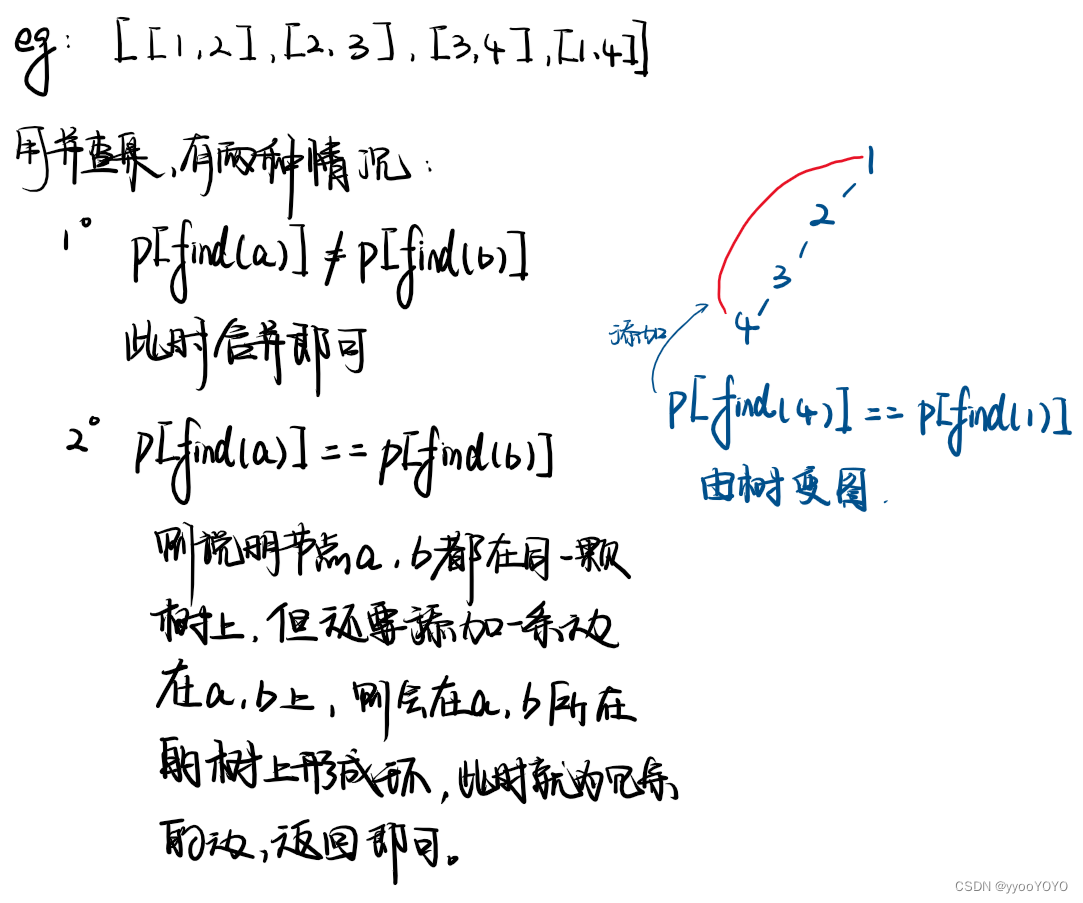 eg: [[1,2],[2,3],[3,4],[1,4]]
用并查集,有两种情况:
1° p[find(a)] ≠ p[find(b)]
此时合并即可
2° p[find(a)] == p[find(b)]
则说明节点a,b都在同一颗
树上,但还要添加一条边
在a,b上,则会在a,b所在
的树上形成环,此时就为冗余
的边,返回即可。
1
2
3
4
添加
p[find(4)] == p[find(1)]
由树变图.
CSDN @yyooYOYO